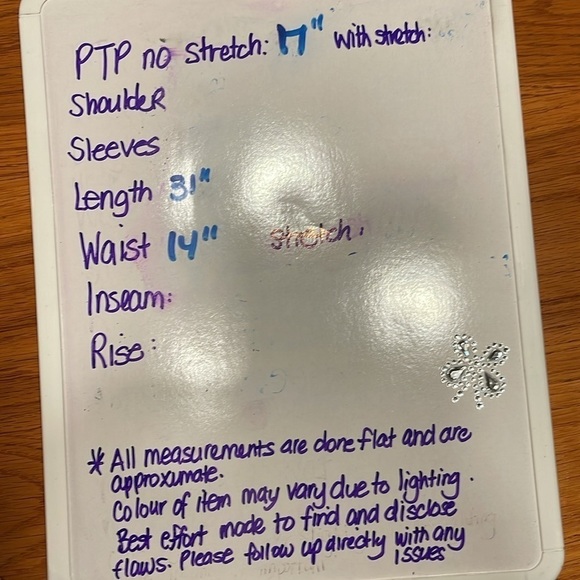 PTP no Stretch: 17" with stretch:
Shoulder
Sleeves
Length 31"
Waist 14" Stretch:
Inseam:
Rise:
* All measurements are done flat and are
approximate.
Colour of item may vary due to lighting.
Best effort made to find and disclose
flaws. Please follow up directly with any
issues